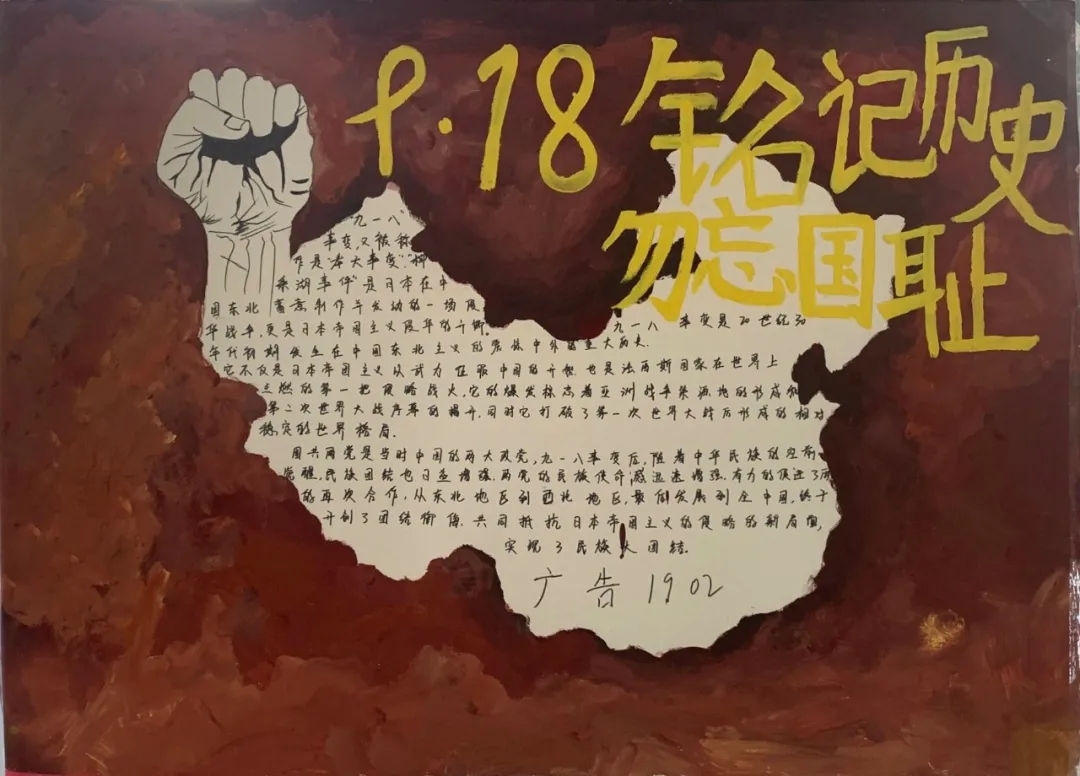 9·18 铭记历史
勿忘国耻
"九一八"
事变,又被称
作是"奉大事变""柳
条湖事件"是日本在中
国东北蓄意制作并发动的一场侵
华战争,更是日本帝国主义侵华的开端。
九一八 事变是20世纪30
年代初期发生在中国东北主义的震惊中外的重大历史。
它不仅是日本帝国主义从武力征服中国的开始,也是法西斯国家在世界上
点燃的第一把侵略战火,它的爆发标志着亚洲战争策源地的形成和
第二次世界大战序幕的揭开,同时它打破了第一次世界大战后形成的相对
稳定的世界格局。
国共两党是当时中国的两大政党,九一八事变后,随着中华民族的空前
觉醒,民族团结也日益增强,两党的民族使命感迅速增强,有力的促进了两
的再次合作,从东北地区到西北地区,最朝发展到全中国,终于
开创了团结御侮,共同抵抗日本帝国主义的侵略的新局面,
实现了民族大团结。
广告 1902